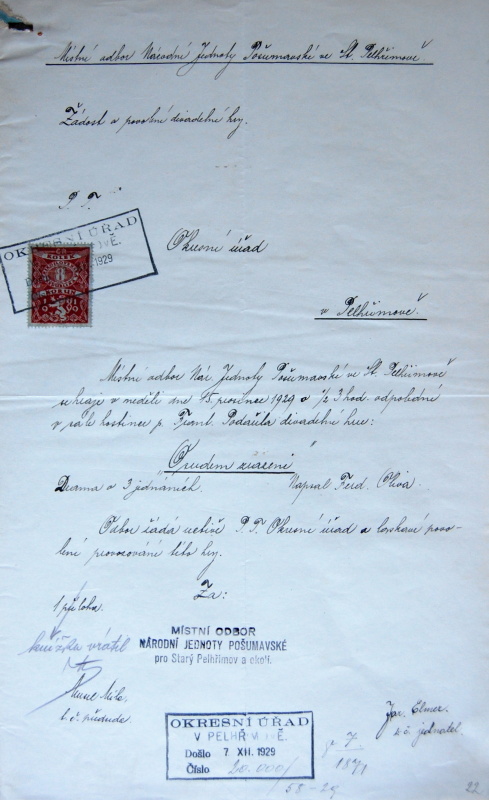 Místní odbor Národní Jednoty Pošumavské ve St. Pelhřimově.
Žádost o povolení divadelní hry.
P. T.
Okresní úřad
v Pelhřimově.
OKRESNÍ ÚŘAD
1929
KOLEK
8
KORUN
Místní odbor Nár. Jednoty Pošumavské ve St. Pelhřimově
sehraje v neděli dne 15. prosince 1929 o ½ 3 hod. odpolední
v sále hostince p. Frant. divadelní hru:
"Osudem zničení"
Drama o 3 jednáních. Napsal Ferd. Oliva.
Odbor žádá uctivě P. T. Okresní úřad o laskavé povo-
lení provozování této hry.
Za:
1 příloha.
MÍSTNÍ ODBOR
NÁRODNÍ JEDNOTY POŠUMAVSKÉ
pro Starý Pelhřimov a okolí.
knížka vrátil
t. č. předseda.
Jar. Elmer
t. č. jednatel.
OKRESNÍ ÚŘAD
V PELHŘIMOVĚ.
Došlo 7. XII. 1929
Číslo 20.000/
58-29
7
1891
22